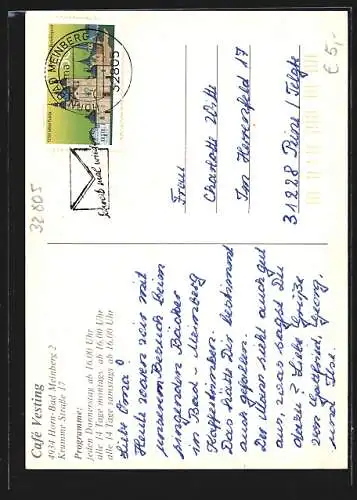 Café Vesting
4934 Horn-Bad Meinberg 2
Krumme Straße 17
Programme:
jeden Donnerstag ab 16.00 Uhr
alle 14 Tage montags, ab 16.00 Uhr
alle 14 Tage samstags, ab 16.00 Uhr
Liebe Oma!
Heute waren wir mit
unserem Besuch beim
singenden Bäcker
in Bad-Meinberg
Kaffeetrinken.
Das hätte Dir bestimmt
auch gefallen.
Der Mann sieht auch gut
aus, was sagst Du
dazu? Liebe Grüße
von Gottfried, Georg,
und Ilse.
BAD MEINBERG
32805
Schreib mal wieder
Frau
Charlotte Witte
Im Herrenfeld 17
31228 Peine/Telgte
32805
€ 5,-